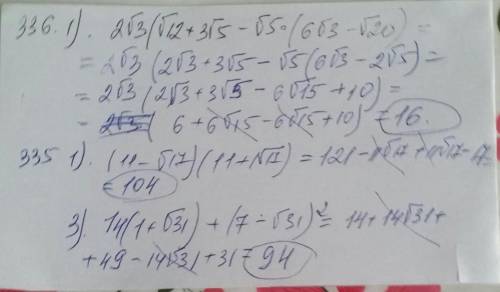 336. 1). 2√3(√12+3√5 - √5 · (6√3 - √20) =
= 2√3 (2√3+3√5 - √5(6√3 - 2√5) =
= 2√3 (2√3+3√5 - 6√15 + 10) =
= 2√3 ( 6 + 6√15 - 6√15 + 10) = 16.
335 1). (11 - √17)(11+√17) = 121 - 11√17 + 11√17 - 17
= 104
3). 14(1+√31) + (7 - √31)² = 14 + 14√31 +
+ 49 - 14√31 + 31 = 94